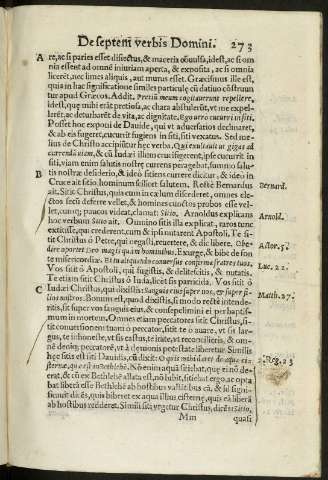 De septem verbis Domini. 273
A re, ac si paries esset disiectus, & maceria cõuulsa, idest, ac si om
nia essent ad omnẽ iniuriam aperta, & exposita, ac si omnia
licerẽt, nec limes aliquis, aut murus esset. Græcismus ille est,
quia in hac significatione similes particulę cũ datiuo cõstruun
tur apud Græcos. Addit. Pretiũ meum cogitauerunt repellere,
idest, que mihi erãt pretiosa, ac chara abstulerũt, vt me expel-
lerẽt, ac deturbarẽt de vita, ac dignitate. Ego vero cucurri in siti.
Posset hoc exponi de Dauide, qui vt aduersarios declinaret,
& ab eis fugeret, cucurrit fugiens in siti, siti vexatus. Sed me-
lius de Christo accipitur hęc verba. Qui exultauit ut gigas ad
currendũ uiam, & cũ Iudæi illum crucifigerent, ipse cucurrit in
siti, viam enim salutis nostrę currens peragebat, summo salu-
B tis nostræ desiderio, & ideò sitiens currere dicitur, & ideo in
Cruce ait sitio. hominum scilicet salutem. Rectè Bernardus
ait, Sitis Christi, quia cum in cælum discederet, omnes ele-
ctos secũ deferre vellet, & homines cunctos probos esse vel-
let, cunq; paucos videat, clamat: Sitio. Arnoldus explicans
hoc verbum Sitio ait. Omnino sitis illa explicat, raros tunc
extitisse, qui crederent, cum & ips. nutarent Apostoli. Te si-
tit Christus ò Petre, qui negasti, reuertere, & dic libere. Obe-
dire oportet Deo magis quàm hominibus. Exurge, & bibe de fon
te misericordiæ. Et tu aliquando conuersus confirma fratres tuos.
Vos sitit ò Apostoli, qui fugistis, & delitescitis, & nutatis.
Te etiam sitit Christus ò Iuda, licet sis parricida. Vos sitit ò
C Iudæi Christus, qui dixistis. Sanguis eius super nos, & super fi-
lios nostros. Bonum est, quod dixistis, si modo rectè intende-
ritis, sit super vos sanguis eius, & consepelimini ei per baptis-
mum in mortem. Omnes etiam peccatores sitit Christus, si-
tit conuersionem tuam ò peccator, sitit te ò auare, vt sis lar-
gus, te inhoneste, vt sis castus, te irate, vt reconcilieris, & om
nẽ deniq; peccatorẽ, vt à dęmonis potestate liberetur. Similis
hęc sitis est siti Dauidis, cũ dicit: O quis mihi daret de aqua cis-
ternæ, quæ est in Bethlehẽ. Nõ enim aquã sitiebat, quæ ei nõ de
erat, & cũ ex Bethlehẽ allata est, nõ bibit, sitiebat ergo, ac opta
bat liberã esse Bethlehẽ ab hostibus vallãtibus eã, & id signi-
ficauit dicẽs, quis bibret ex aqua illius cisternę, quis eã liberã
ab hostibus redderet. Simili siti vrgetur Christus, dicẽs: Sitio,
Mm quasi
Bernard.
Arnold.
Actor. 5.
Luc. 22.
Matth. 27.
2. Reg. 23